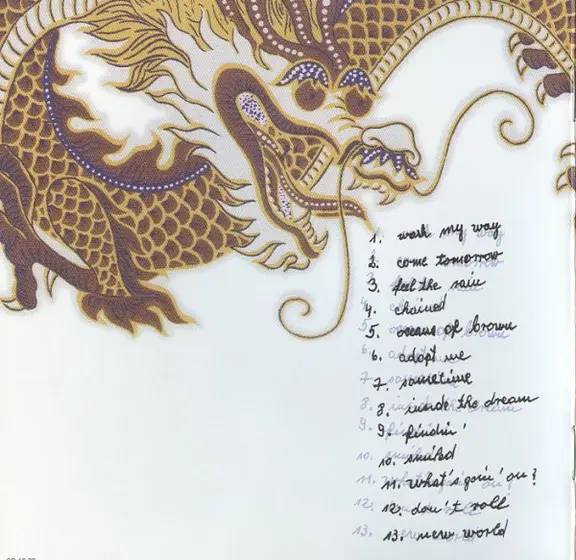 1. wash my way
2. come tomorrow
3. feel the rain
4. chained
5. ocean of brown
6. adopt me
7. sometime
8. inside the dream
9. findin'
10. smiled
11. what's goin' on?
12. don't roll
13. new world